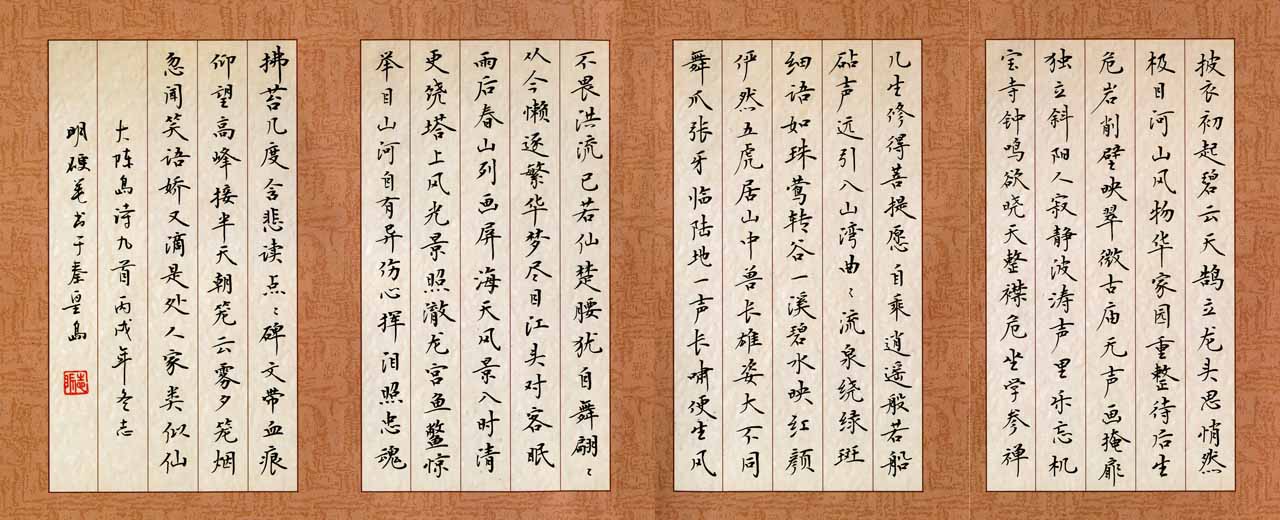 披衣初起碧云天鹄立龙头思悄然
极目河山风物华家园重整待后生
危岩削壁映翠微古庙无声画掩扉
独立斜阳人寂静波涛声里乐忘机
宝寺钟鸣欲晓天整襟危坐学参禅
几生修得菩提愿自乘逍遥般若船
砧声远引入山湾曲〻流泉绕绿斑
细语如珠莺转谷一溪碧水映红颜
俨然五虎居山中兽长雄姿大不同
舞爪张牙临陆地一声长啸便生风
不畏洪流已若仙楚腰犹自舞翩〻
从今懒逐繁华梦尽目江头对客眠
雨后春山列画屏海天风景入时清
更绕塔上风光景照澈龙宫鱼鳖惊
举目山河自有异伤心挥泪照忠魂
拂苔几度含悲读点〻碑文带血痕
仰望高峰接半天朝笼云雾夕笼烟
忽闻笑语娇又滴是处人家类似仙
大陈岛诗九首丙戌年冬志
明硬笔书于秦皇岛